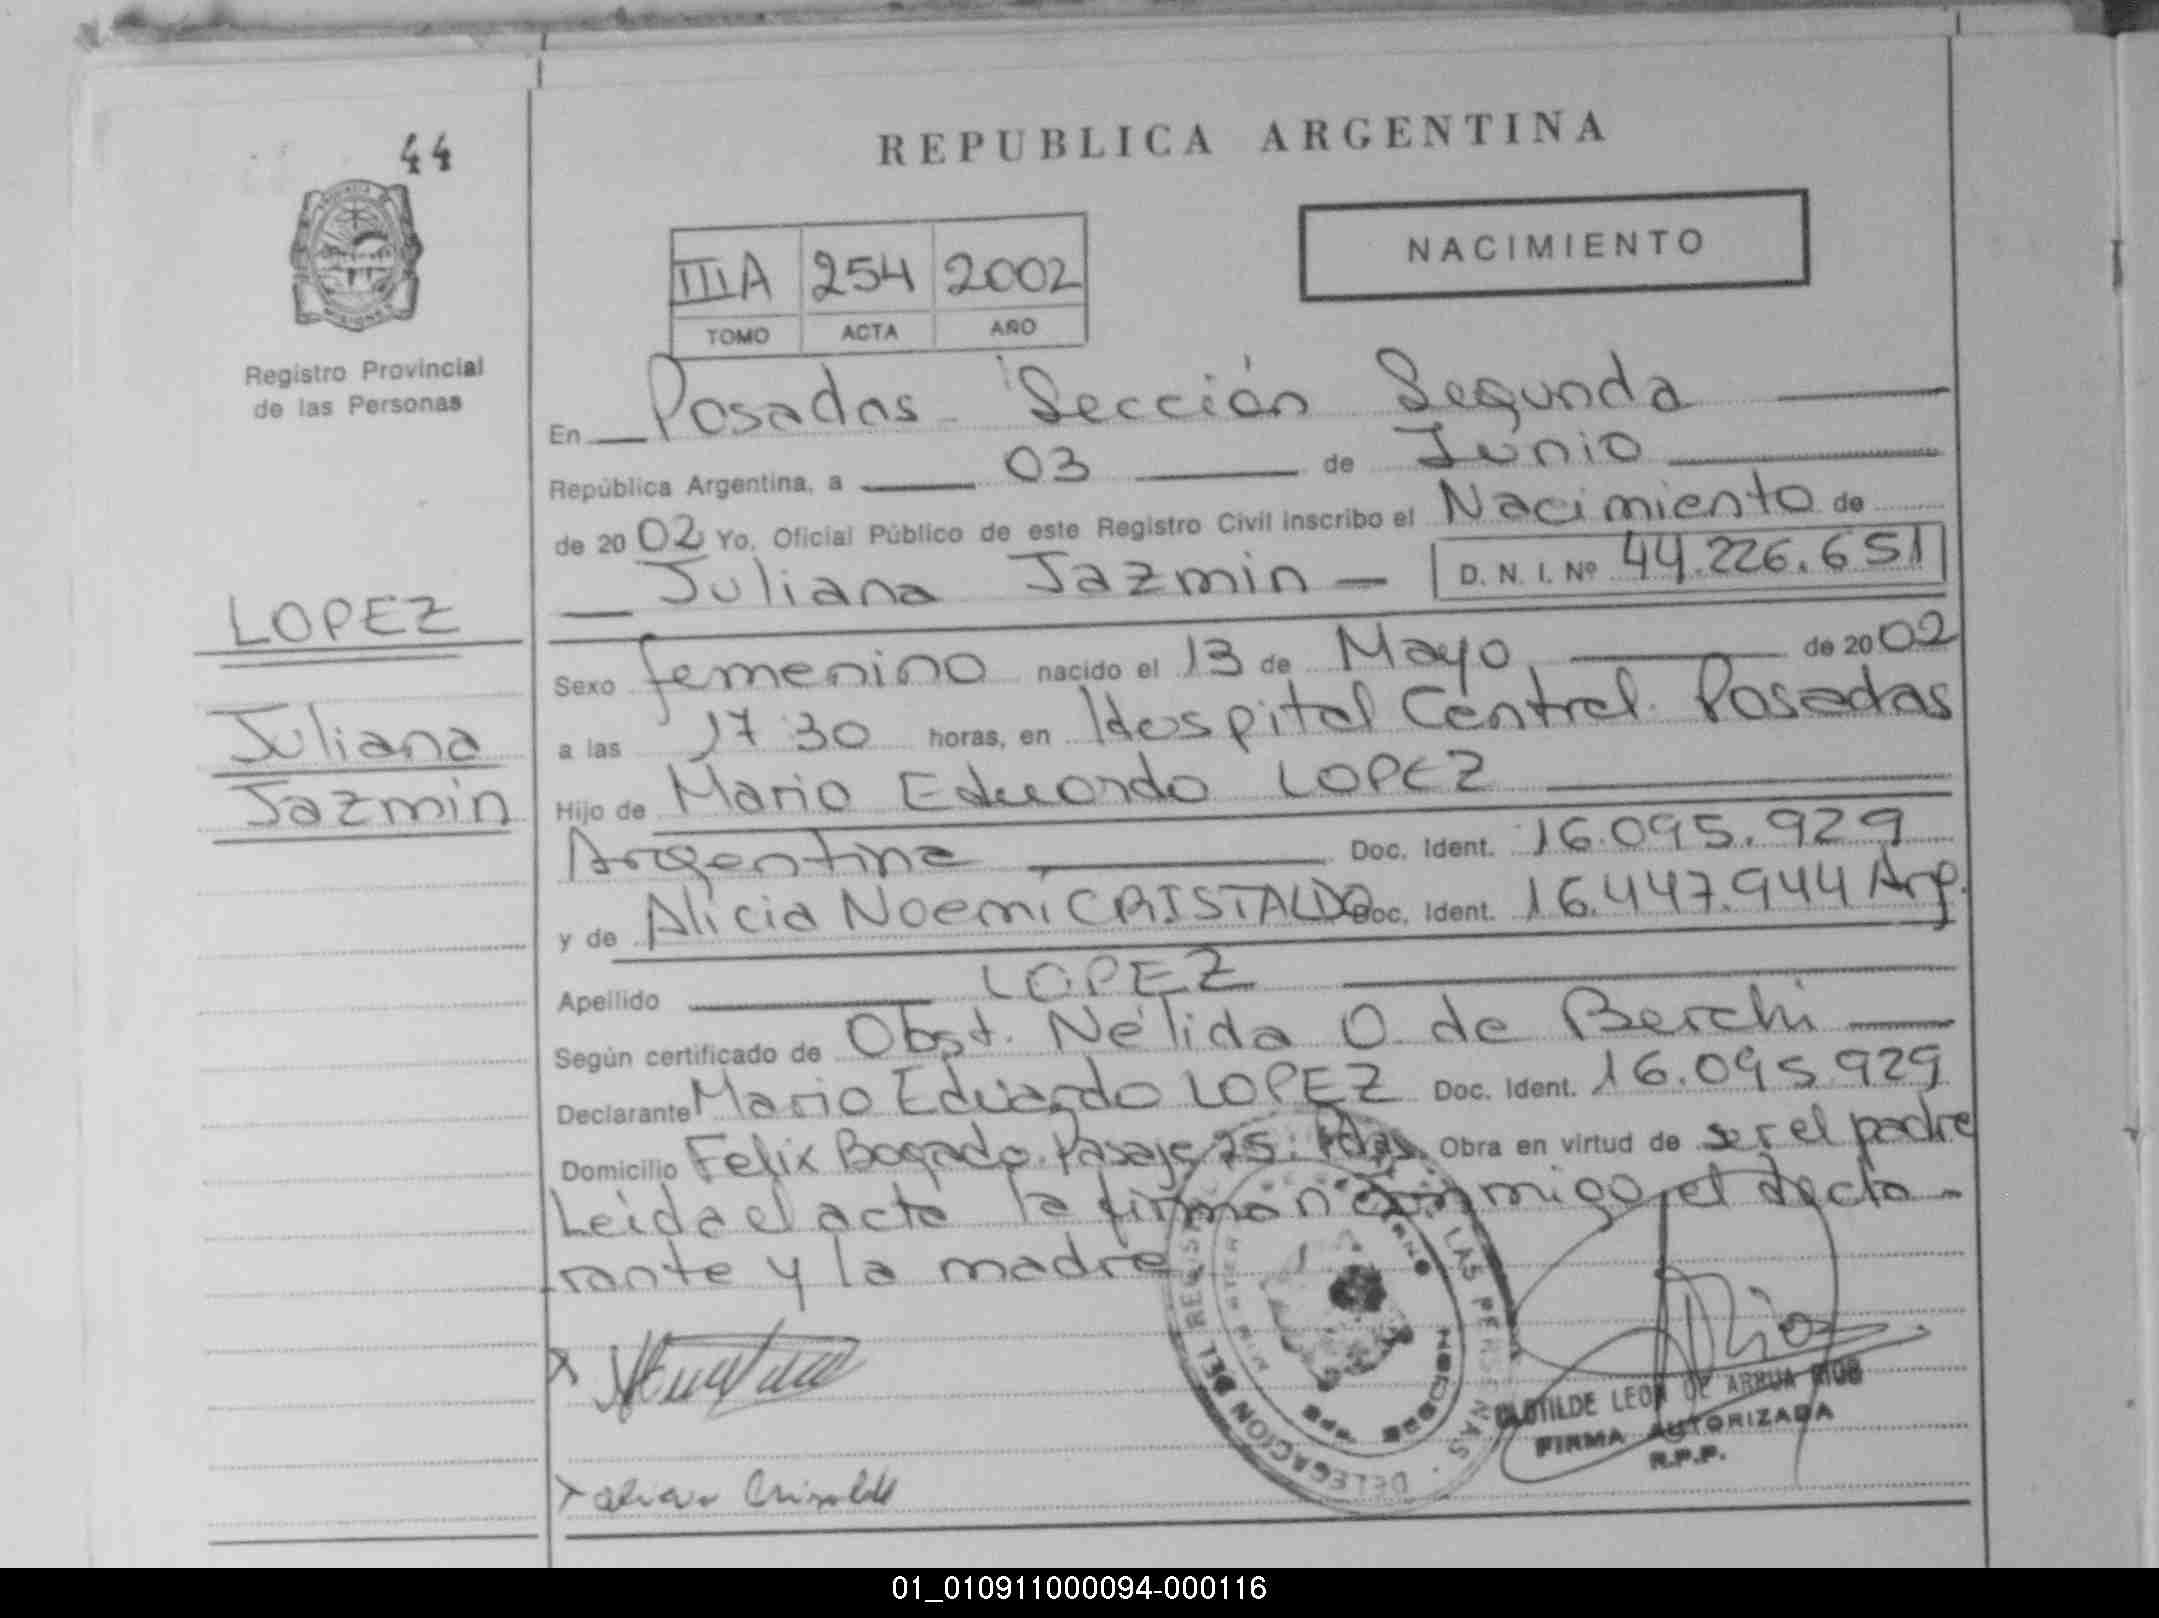 44
REPUBLICA ARGENTINA
NACIMIENTO
IIIA 254 2002
TOMO ACTA AÑO
Registro Provincial
de las Personas
LOPEZ
Juliana
Jazmin
En Posadas Sección Segunda
República Argentina, a 03 de Junio
de 2002 Yo, Oficial Público de este Registro Civil inscribo el Nacimiento de
Juliana Jazmin D. N. I. Nº 44.226.651
Sexo femenino nacido el 13 de Mayo de 2002
a las 17 30 horas, en Hospital Central. Posadas
Hijo de Mario Eduardo LOPEZ
Argentina Doc. Ident. 16.095.929
y de Alicia Noemi CRISTALDO Doc. Ident. 16.447.944 Arg.
Apellido LOPEZ
Según certificado de Obst. Nélida O. de Berchi
Declarante Mario Eduardo LOPEZ Doc. Ident. 16.095.929
Domicilio Felix Bogado. Pasaje 25. Pdas. Obra en virtud de ser el padre
Leida el acta la firman conmigo el decla-
rante y la madre
DELEGACION DEL REGIS LAS PERSONAS
CLOTILDE LEON DE ARRUA
FIRMA AUTORIZADA
R.P.P.
01_010911000094-000116